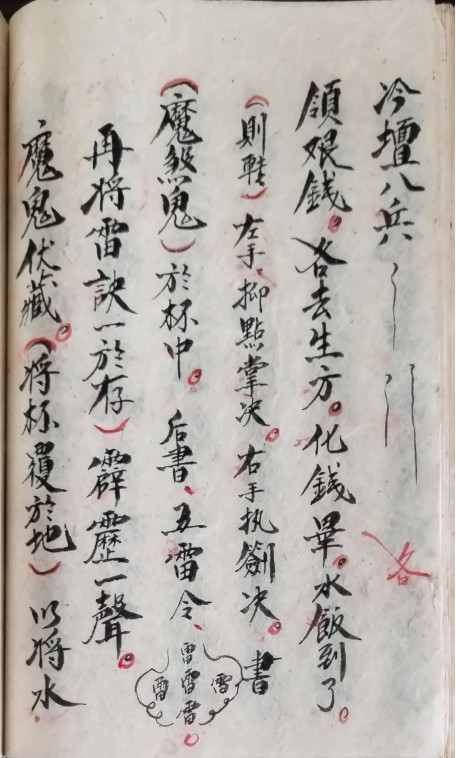 冷壇八兵
各
領艰錢。各去生方。化錢畢。水飯到了。
(則鞋)左手、抑點掌决。右手执劍决。書
(魔煞鬼)於杯中。后書、五雷令、雷雷雷雷雷。
再将雷訣一於存)霹靂一聲。
魔鬼伏藏。(将杯覆於地)以將水